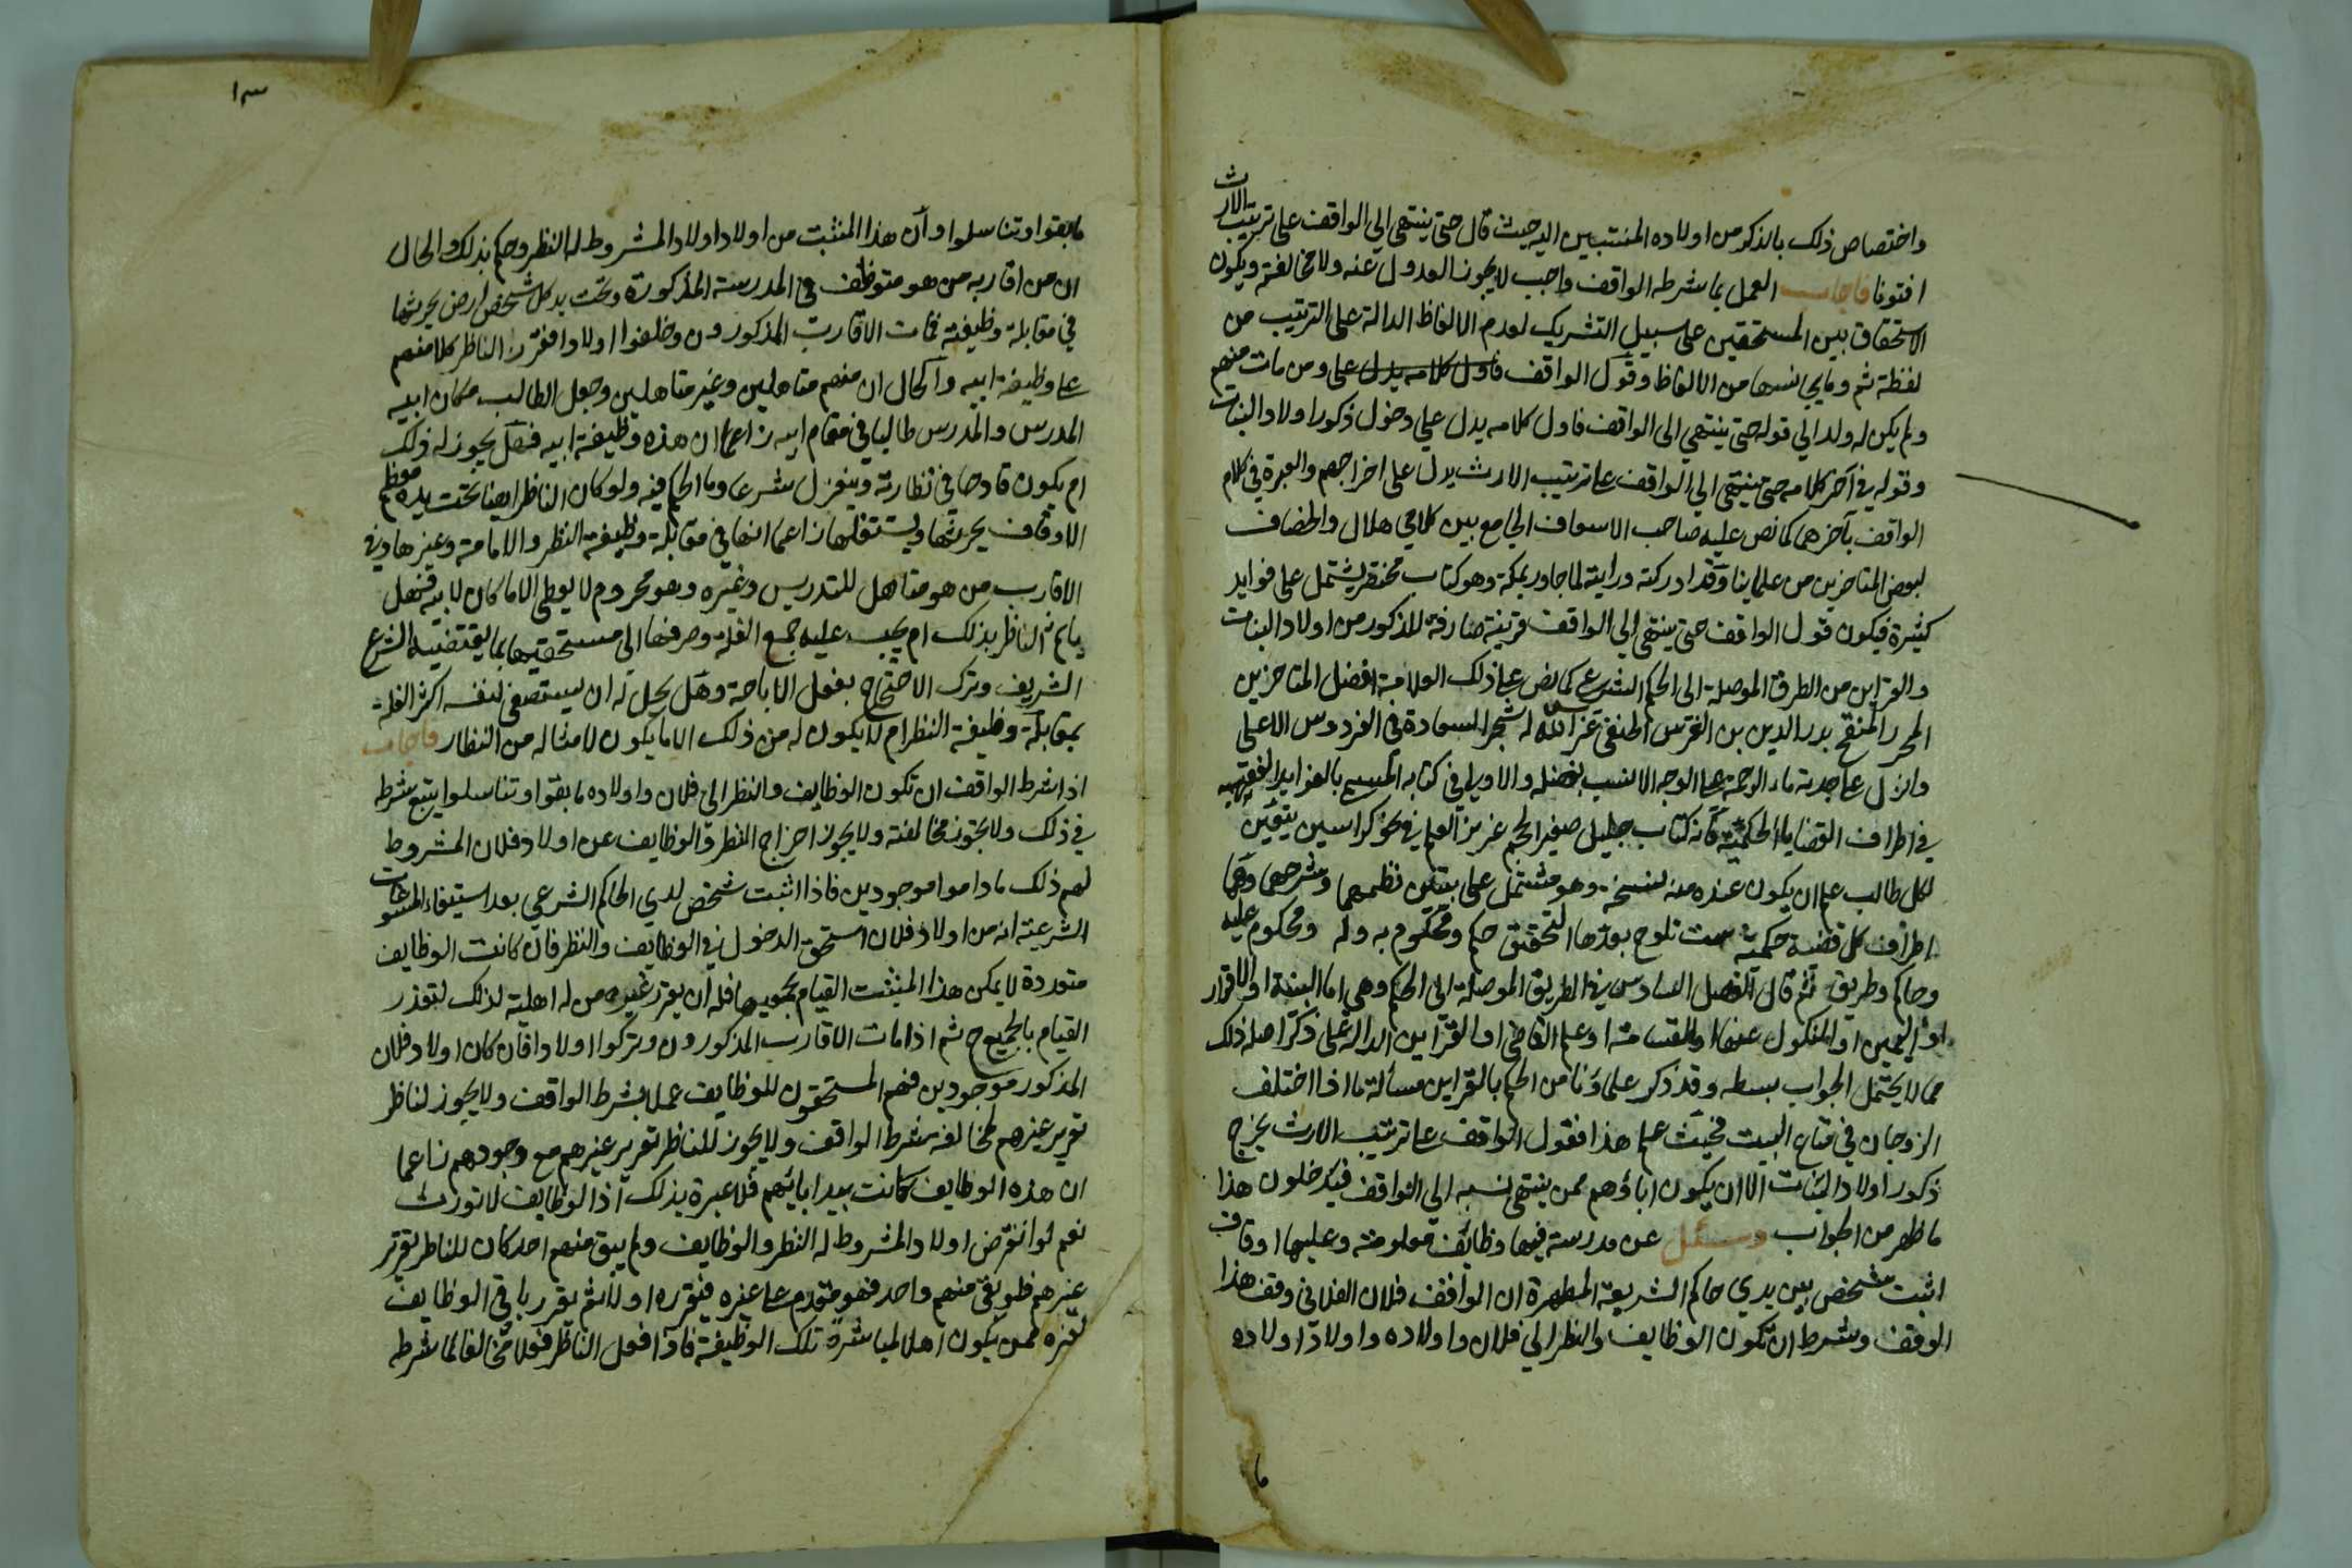 واختصاص ذلك بالذكور من اولاده المنتسبين اليه حيث قال حتى ينتهي الي الواقف على ترتيب الارث
افتونا فاجاب العمل بما شرطه الواقف واجب لا يجوز العدول عنه ولا مخالفته ويكون
الاستحقاق بين المستحقين على سبيل التشريك لعدم الالفاظ الدالة على الترتيب من
لفظة ثم وما يجانسها من الالفاظ وقول الواقف فاول كلامه يدل على ومن مات منهم
ولم يكن له ولد الي قوله حتى ينتهي الى الواقف فاول كلامه يدل علي دخول ذكور اولاد البنات
وقوله في آخر كلامه حتى ينتهي الي الواقف على ترتيب الارث يدل على اخراجهم والعبرة في كلام
الواقف بآخرهما كما نص عليه صاحب الاسعاف الجامع بين كلامي هلال والخصاف
لبعض المتاخرين من علماينا وقد ادركته ورايته لما جاور بمكة وهو كتاب مختصر يشتمل على فوايد
كثيرة فيكون قول الواقف حتى ينتهي الي الواقف قرينة صارفة للذكور من اولاد البنات
والقراين من الطرق الموصلة الى الحكم الشرعي كما نص على ذلك العلامة افضل المتاخرين
المحرر المنقح بدر الدين بن الغرس الحنفي غرس الله له شجر السعادة في الفردوس الاعلى
وانزل على جدثه ماء الرحمة على الوجه الانسب بفضله والاولى في كتابه المسمى بالفوايد الفقهيه
في اطراف القضايا الحكمية فانه كتاب جليل صغير الحجم غزير العلم في نحو كراسين يتعين
لكل طالب علم ان يكون عنده منه نسخة وهو مشتمل على بيتين نظمهما وشرحهما وهما
اطراف كل قضية حكمية ست تلوح بعدها التحقيق حكم ومحكوم به وله ومحكوم عليه
وحاكم وطريق ثم قال الفصل السادس في الطريق الموصلة الى الحكم وهي اما البينة او الاقرار
او اليمين او النكول عنها او القسامة او علم القاضي او القراين الدالة على ذكر اصله ذلك
مما لا يحتمل الجواب بسطه وقد ذكر علماؤنا من الحكم بالقراين مسألة ما اذا اختلف
الزوجان في متاع البيت فحيث علم هذا فقول الواقف على ترتيب الارث يخرج
ذكور اولاد البنات الا ان يكون اباؤهم ممن ينتهي نسبه الي الواقف فيدخلون هذا
ما ظهر من الجواب وسئل عن مدرسة فيها وظائف معلومة وعليها اوقاف
اثبت شخص بين يدي حاكم الشريعة المطهرة ان الواقف فلان الفلاني وقف هذا
الوقف وشرط ان تكون الوظايف والنظر الي فلان واولاده واولاد اولاده
ما
١٣
ما بقوا وتناسلوا وان هذا المثبت من اولاد اولاد المشروط له النظر وحكم بذلك والحال
ان من اقاربه من هو متوظف في المدرسة المذكورة وتحت يد كل شخص ارض يحرثها
في مقابلة وظيفته فمات الاقارب المذكورون وخلفوا اولادا فقرر الناظر كلا منهم
على وظيفة ابيه والحال ان منهم متاهلين وغير متاهلين وجعل الطالب مكان ابيه
المدرس والمدرس طالبا في مقام ابيه زاعما ان هذه وظيفة ابيه فهل يجوز له ذلك
ام يكون قادحا في نظارته وينعزل شرعا وما الحكم فيه ولو كان الناظر ايضا تحت يده معظم
الاوقاف يحرثها ويستغلها زاعما انها في مقابلة وظيفة النظر والامامة وغيرها وفي
الاقارب من هو متاهل للتدريس وغيره وهو محروم لا يعطي الا ما كان لابيه فهل
ياثم الناظر بذلك ام يجب عليه جمع الغلة وصرفها الى مستحقيها بما يقتضيه الشرع
الشريف وترك الاحتجاج بفعل الاباحة وهل يحل له ان يستصفي لنفسه اكثر الغلة
بمقابلة وظيفة النظر ام لا يكون له من ذلك الا ما يكون لامثاله من النظار فاجاب
اذا شرط الواقف ان تكون الوظايف والنظر الى فلان واولاده ما بقوا وتناسلوا يتبع شرطه
في ذلك ولا يجوز مخالفته ولا يجوز اخراج النظر والوظايف عن اولاد فلان المشروط
لهم ذلك ما داموا موجودين فاذا اثبت شخص لدي الحاكم الشرعي بعد استيفاء المسوغات
الشرعية انه من اولاد فلان استحق الدخول في الوظايف والنظر فان كانت الوظايف
متعددة لا يمكن هذا المثبت القيام بجميعها فله ان يقرر غيره من له اهلية لذلك لتعذر
القيام بالجميع ح ثم اذا مات الاقارب المذكورون وتركوا اولادا فان كان اولاد فلان
المذكور موجودين فهم المستحقون للوظايف عملا بشرط الواقف ولا يجوز لناظر
تقرير غيرهم لمخالفة شرط الواقف ولا يجوز للناظر تقرير غيرهم مع وجودهم زاعما
ان هذه الوظايف كانت بيد ابائهم فلا عبرة بذلك اذ الوظايف لا تورث
نعم لو انقرض اولاد المشروط له النظر والوظايف ولم يبق منهم احد كان للناظر تقرير
غيرهم فلو بقي منهم واحد فهو مقدم على غيره فيقرره اولا ثم يقرر باقي الوظايف
لغيره ممن يكون اهلا لمباشرة تلك الوظيفة فاذا فعل الناظر فعلا مخالفا لما شرطه